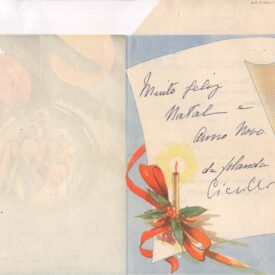 Muito feliz
Natal e
Anno Novo
da Jolanda